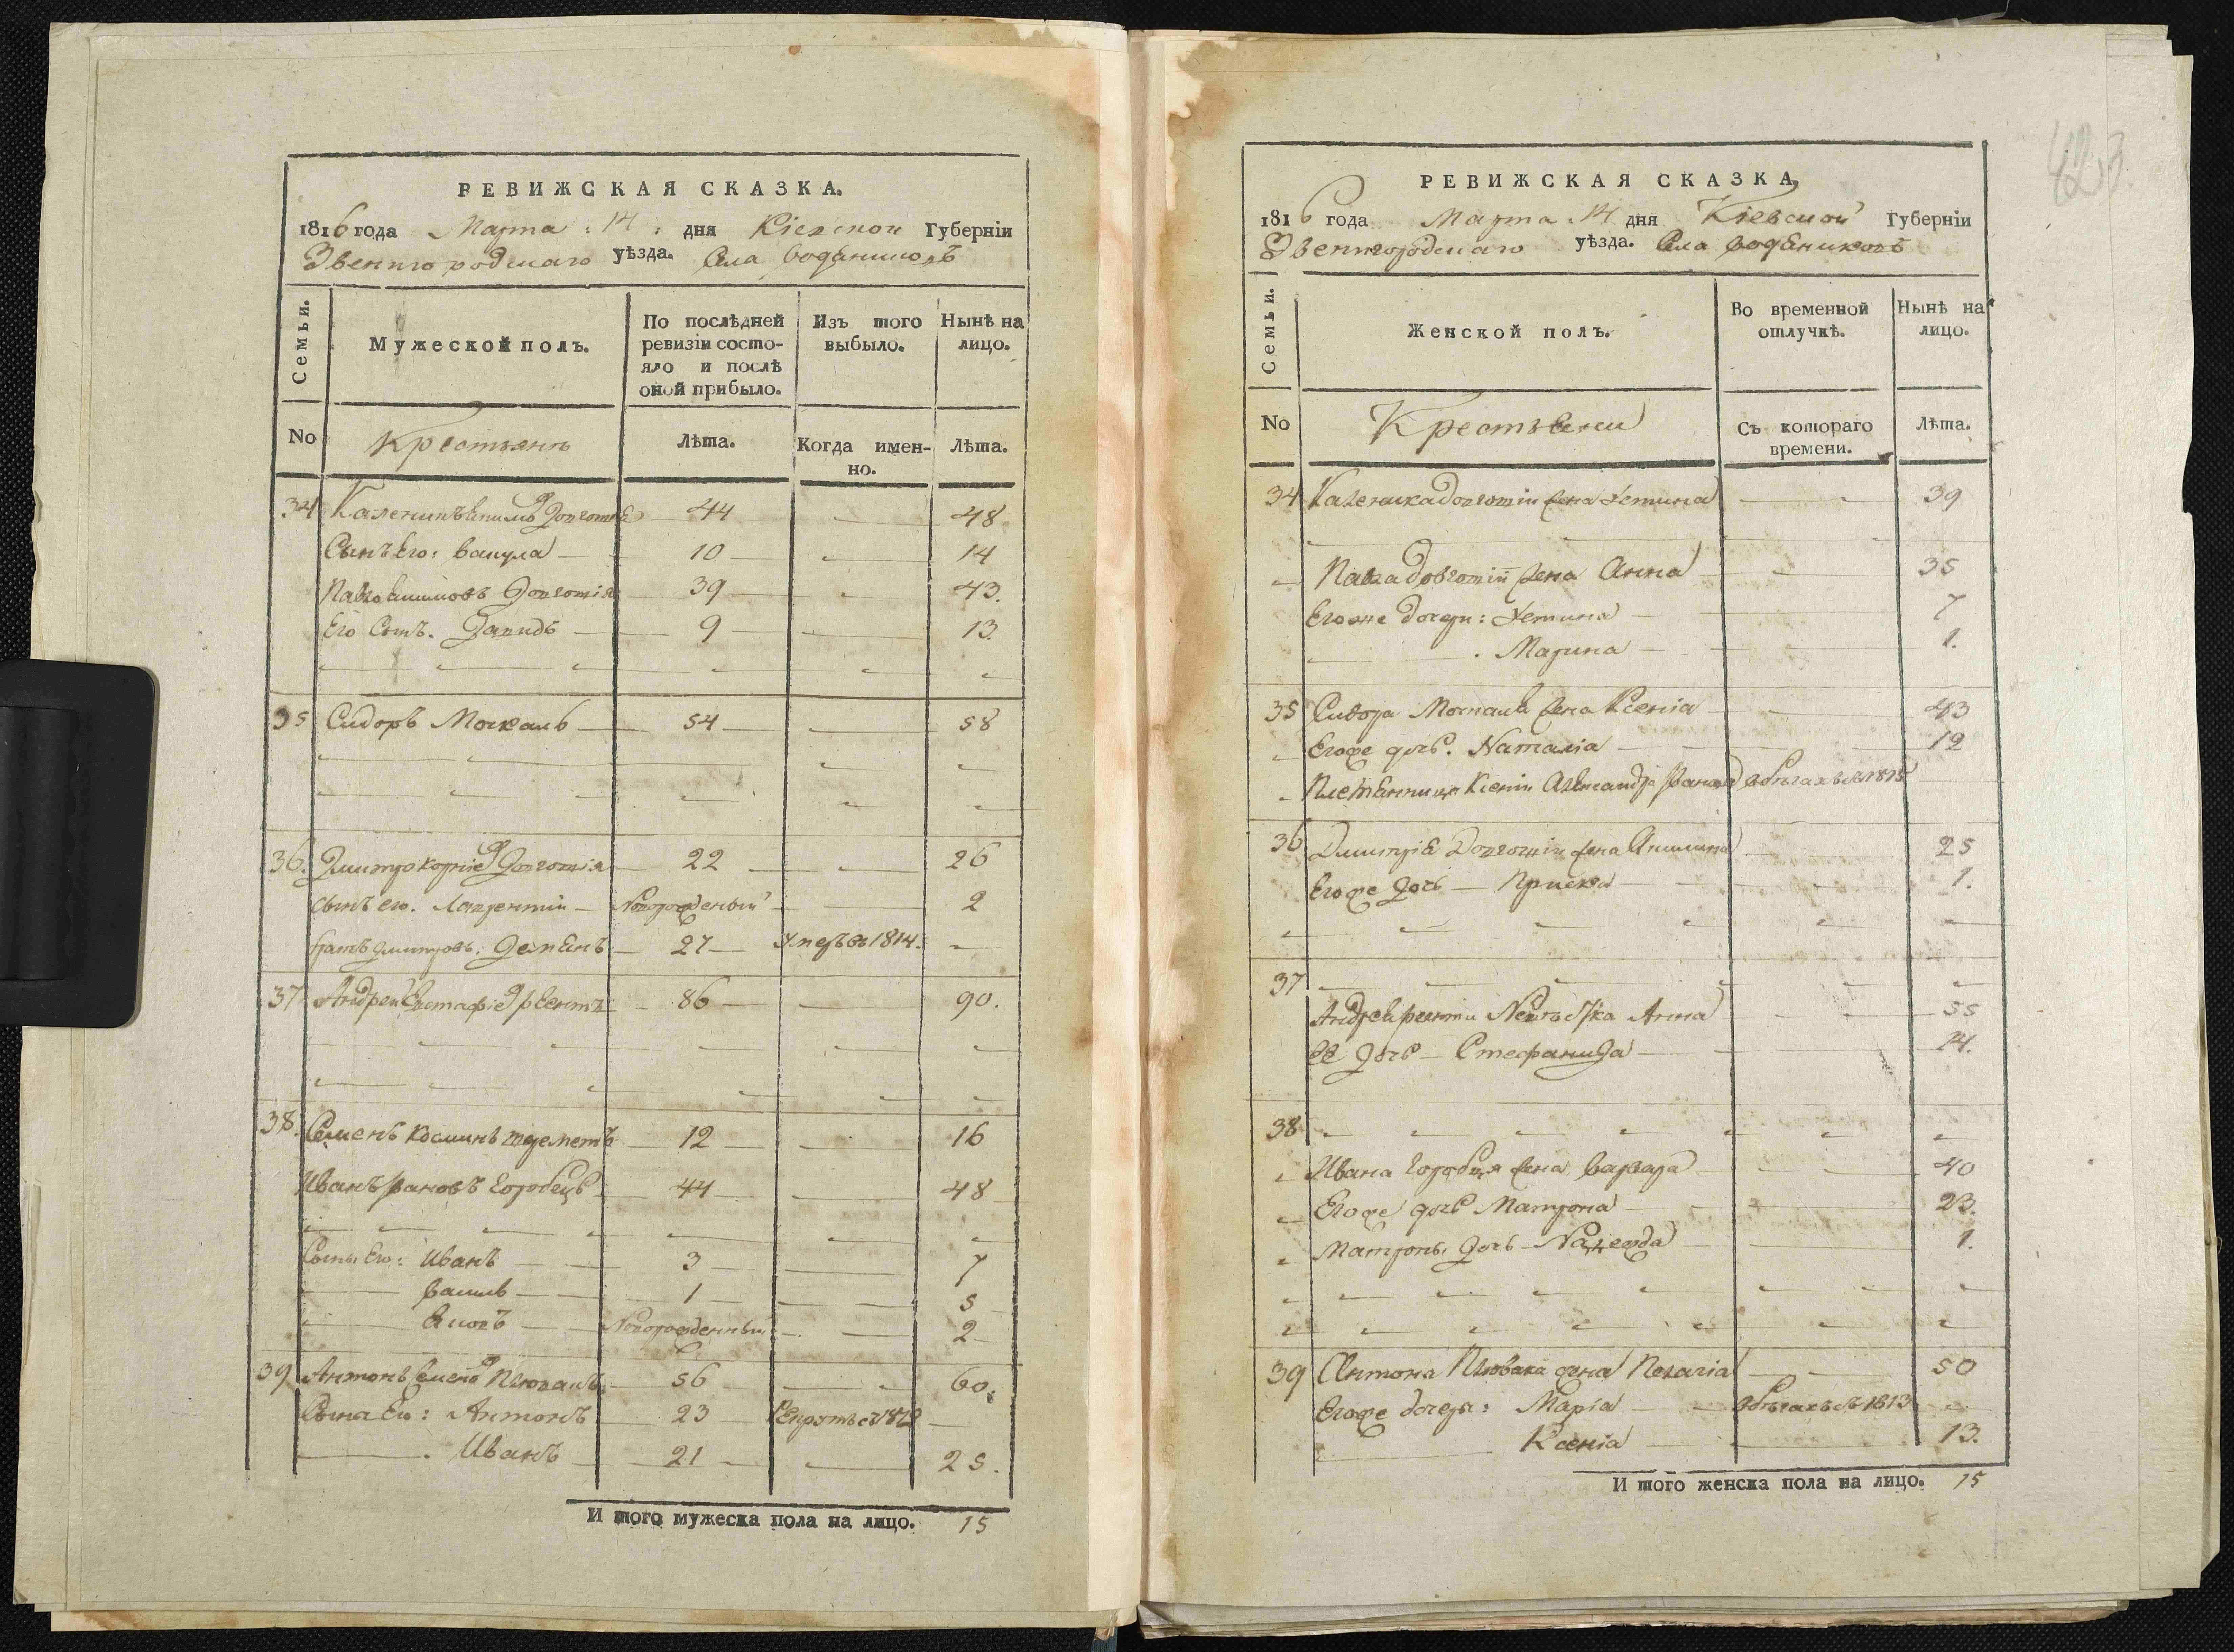 РЕВИЖСКАЯ СКАЗКА.
1816 года Марта 14 дня Кіевской Губерніи
Звенигородскаго уѣзда. Села Водяниковъ
Семьи. Мужеской полъ. По послѣдней ревизіи состояло и послѣ оной прибыло. Изъ того выбыло. Нынѣ на лицо.
No Крестьянъ Лѣта. Когда именно. Лѣта.
34 Каленикъ 44 48
Сынъ Его: Вакула 10 14
Павло 39 43.
Его Сынъ. Давидъ 9 13.
35 Сидоръ Москаль 54 58
36. Дмитро Корніев 22 26
сынъ его. Лаврентій Новорожденый 2
братъ Дмитровъ: Демянъ 27 Умеръ въ 1814.
37 Андрей Евстафіев 86 90.
38. Семенъ Косминъ 12 16
Иванъ Ивановъ Горобецъ 44 48
Сыны Его: Иванъ 3 7
Василь 1 5
Яковъ Новорожденный 2
39 Антонъ Семено Плювакъ 56 60.
Сына Его: Антонъ 23
Иванъ 21 25.
И того мужеска пола на лицо. 15
423
РЕВИЖСКАЯ СКАЗКА,
1816 года Марта 14 дня Кіевской Губерніи
Звенигородскаго уѣзда. Села Водяниковъ
Семьи. Женской полъ. Во временной отлучкѣ. Нынѣ на лицо.
No Съ котораго времени. Лѣта.
34 Каленика Довготіи жена Устина 39
Павла Довготіи жена Анна 35
Егоже дочери: Устина 7
Марина 1.
35 Сидора Москаля жена Ксенія 43
Егоже дочь. Наталія 12
Племянница Ксеніи Александра
36 Дмитрія Довготіи жена Акилина 25
Егоже дочь Приска 1.
37
Андрея Невѣстка Анна 55
Ее дочь Стефанида 14.
38
Ивана Горобця жена Варвара 40
Егоже дочь Матрона 23.
Матроны дочь Надежда 1.
39 Антона Плювака жена Пелагія 50
Егоже дочери: Марія въ бѣгахъ съ 1813
Ксенія 13.
И того женска пола на лицо. 15